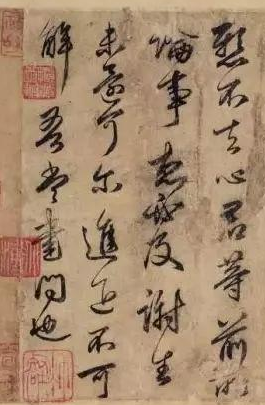 不去心君等前所
論事想必及謝生
未還可尔進退不可
解吾當書問也